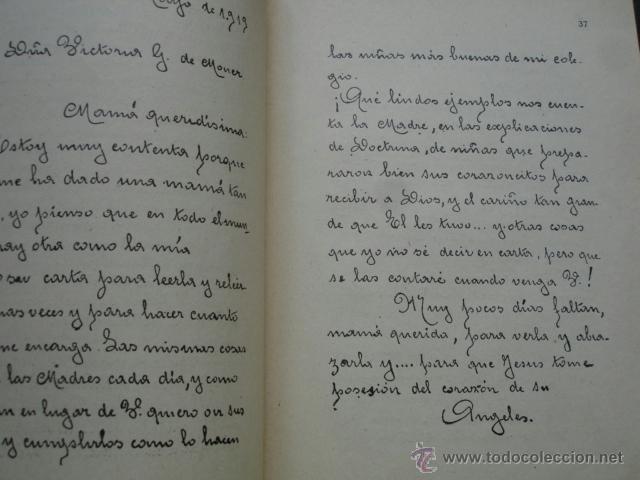 de 1919
Dña Victoria G. de Moner
Mamá queridísima:
Estoy muy contenta porque
me ha dado una mamá tan
, yo pienso que en todo el mun-
hay otra como la mía
su carta para leerla y releer
veces y para hacer cuanto
me encarga. Las mismas cosas
las Madres cada día, y como
en lugar de V. quiero oir sus
y cumplirlos como lo hacen
37
las niñas más buenas de mi cole-
gio.
¡Qué lindos ejemplos nos cuen-
ta la Madre, en las explicaciones
de Doctrina, de niñas que prepa-
raron bien sus corazoncitos para
recibir a Dios, y el cariño tan gran-
de que El les tuvo... y otras cosas
que yo no sé decir en carta, pero que
se las contaré cuando venga V.!
Muy pocos días faltan,
mamá querida, para verla y abra-
zarla y.... para que Jesus tome
posesión del corazón de su
Angeles.
© www.todocoleccion.net